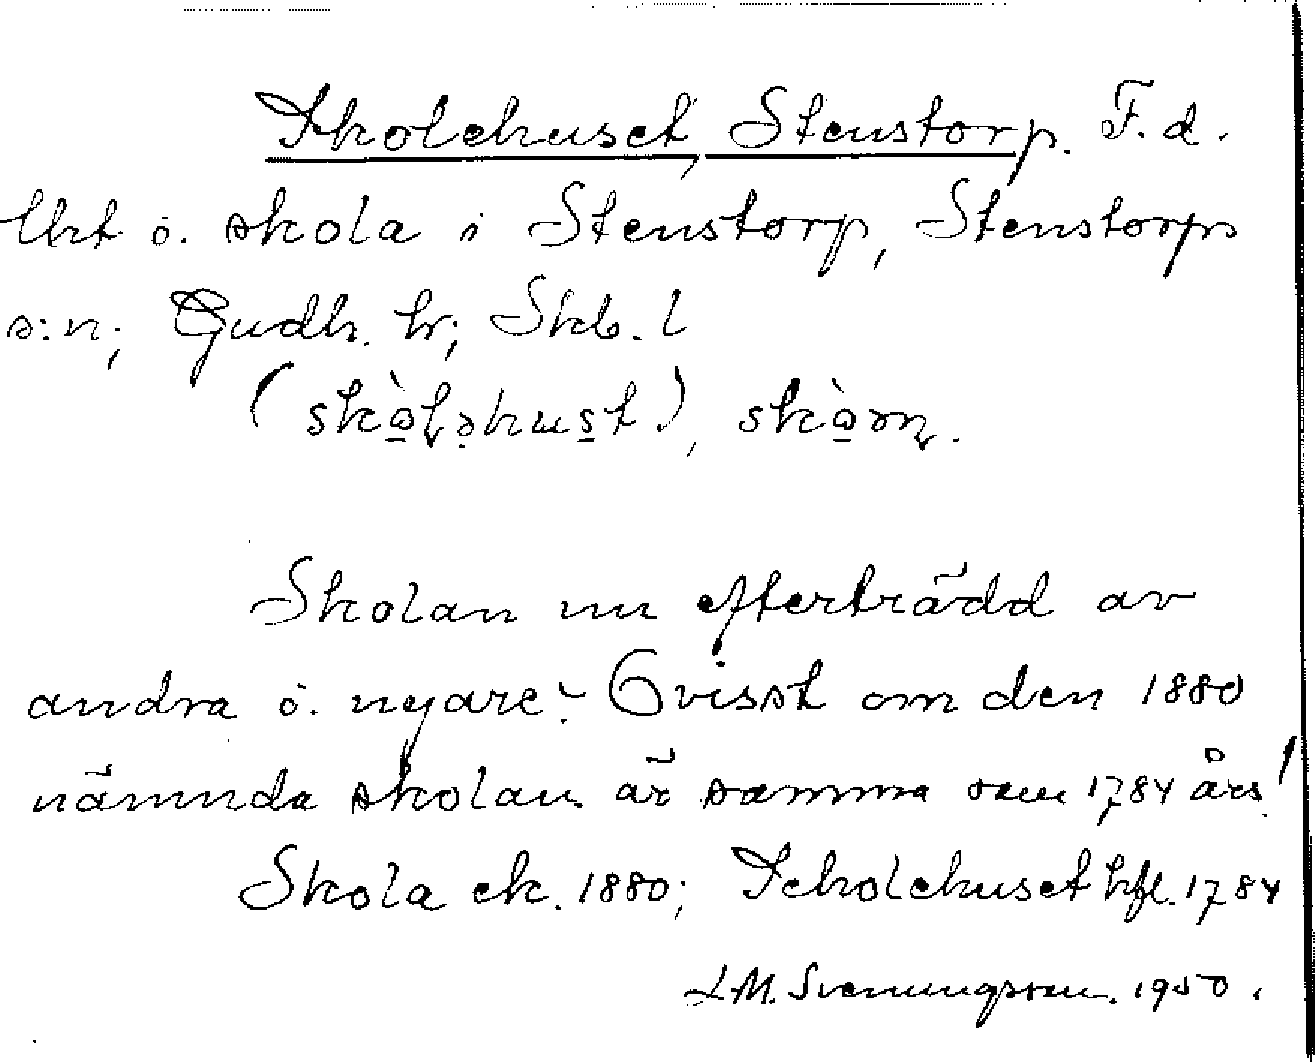 Skolehuset, Stenstorp. F.d.
lht o. skola i Stenstorp, Stenstorps
s:n; Gudh. hr; Skb. l
(skò̠ləhus̠t), skò̠ən.
Skolan nu efterträdd av
andra o. nyare. Ovisst om den 1880
nämnda skolan är samma som 1784 års!
Skola ek. 1880; Scholehuset hfl. 1784
L.M. Svenungsson. 1950.